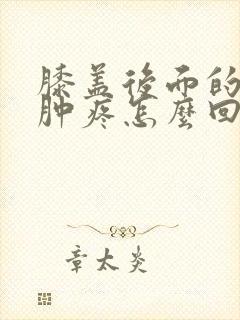 膝盖後面的
肿疼怎麼回
章太炎